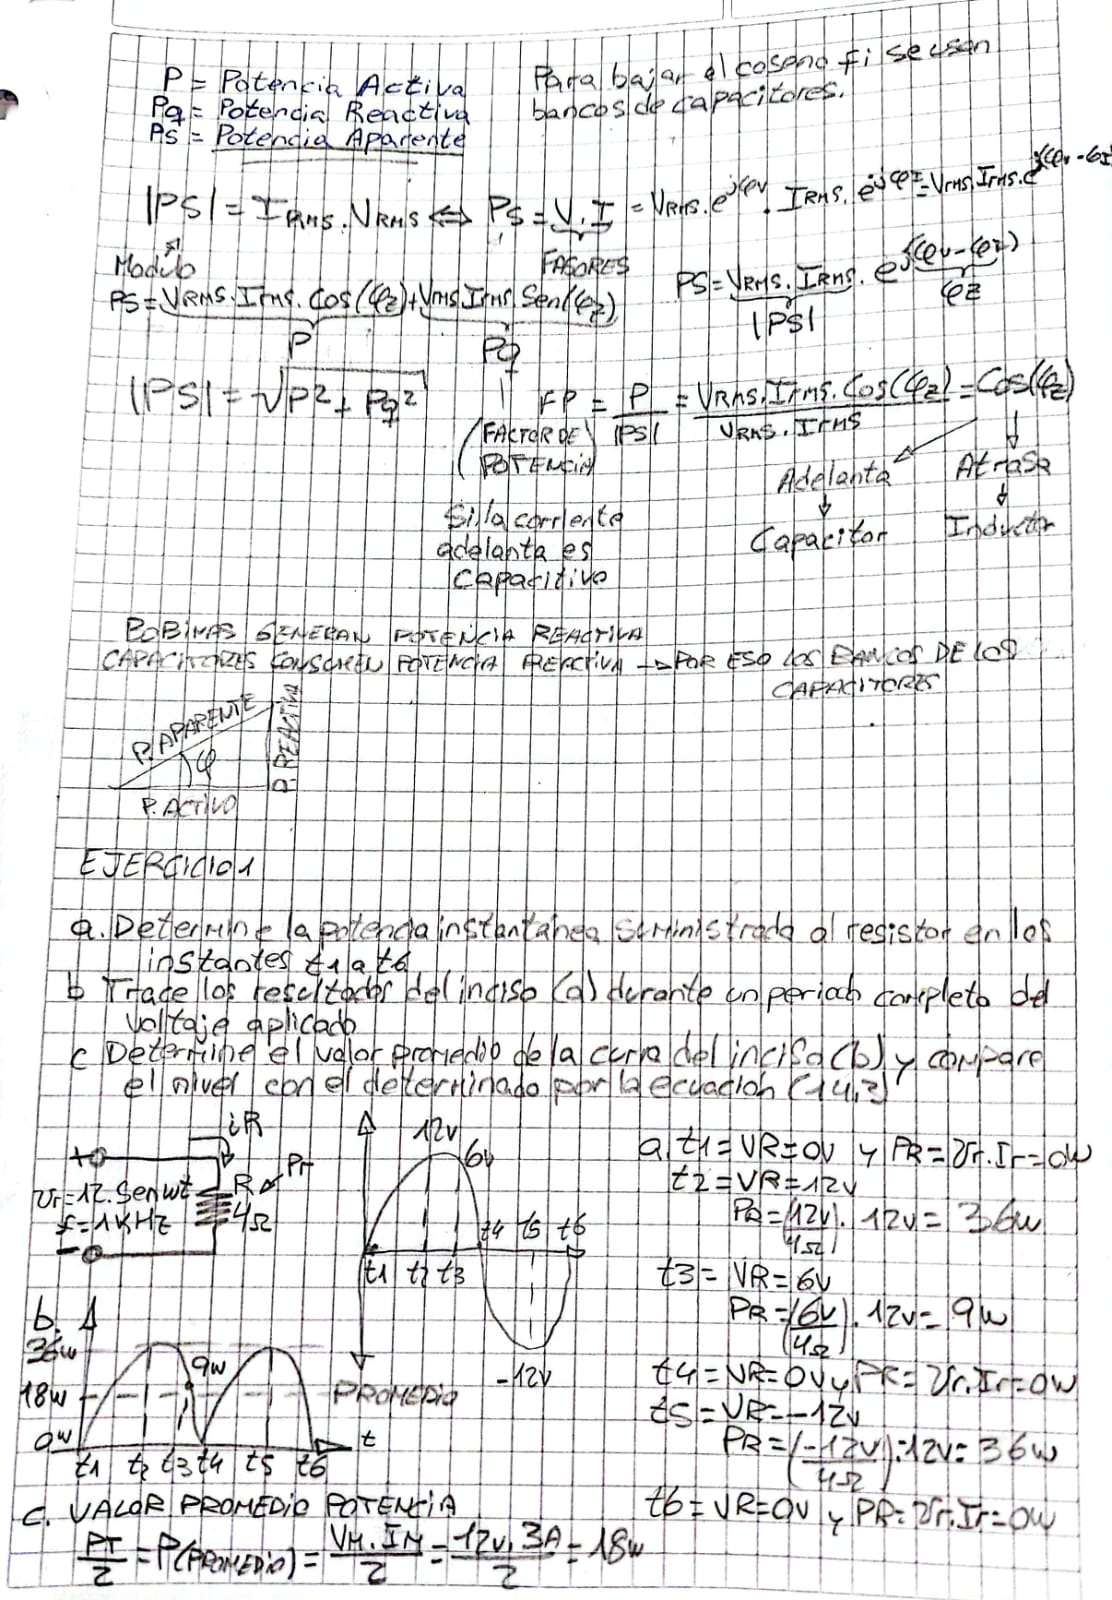 P = Potencia Activa
Pq = Potencia Reactiva
Ps = Potencia Aparente
Para bajar el coseno fi se usan
bancos de capacitores.
|PS| = IRMS . VRMS ⇔ PS = V . I = VRMS . e^jφv . IRMS . e^jφI = VRMS . IRMS . e^j(φv-φI)
Modulo
FASORES
PS = VRMS . IRMS . e^j(φv-φI)
|PS|
φz
PS = VRMS . IRMS . Cos(φz) + VRMS . IRMS . Sen(φz)
P
Pq
|PS| = √P² + Pq²
FP = P/|PS| = VRMS . IRMS . Cos(φz)/VRMS . IRMS = Cos(φz)
(FACTOR DE
POTENCIA)
Adelanta
Atrasa
Capacitor
Inductor
Si la corriente
adelanta es
Capacitivo
BOBINAS GENERAN POTENCIA REACTIVA
CAPACITORES CONSUMEN POTENCIA REACTIVA → POR ESO LOS BANCOS DE LOS
CAPACITORES
P. APARENTE
φ
P. REACTIVA
P. ACTIVO
EJERCICIO 1
a. Determine la potencia instantánea suministrada al resistor en los
instantes t1 a t6
b Trace los resultados del inciso (a) durante un periodo completo del
voltaje aplicado
c Determine el valor promedio de la curva del inciso (b) y compare
el nivel con el determinado por la ecuacion (14,3)
iR
+
Vr=12.Senwt
f=1KHZ
-
R
4Ω
Pr
12v
6v
t1 t2 t3 t4 t5 t6
-12v
a. t1 = VR = 0V y PR = Vr . Ir = 0W
t2 = VR = 12v
PR = (12v/4Ω) . 12v = 36w
t3 = VR = 6v
PR = (6v/4Ω) . 12v = 9w
t4 = VR = 0V y PR = Vr . Ir = 0w
t5 = VR = -12v
PR = (-12v/4Ω) . -12v = 36w
t6 = VR = 0v y PR = Vr . Ir = 0w
b.
36w
18w
0w
9w
PROMEDIO
t
t1 t2 t3 t4 t5 t6
c. VALOR PROMEDIO POTENCIA
PT/2 = P(PROMEDIO) = VM . IM/2 = 12v . 3A/2 = 18w